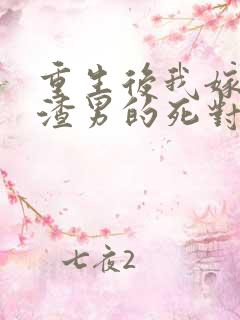 重生後我嫁
渣男的死對
七夜2